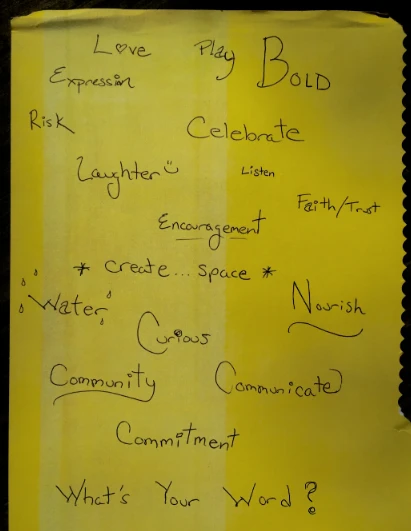 Love Play BOLD
Expression
Risk
Celebrate
Laughter Listen
Faith/Trust
Encouragement
* create... space *
Water Nourish
Curious
Community Communicate
Commitment
What's Your Word?